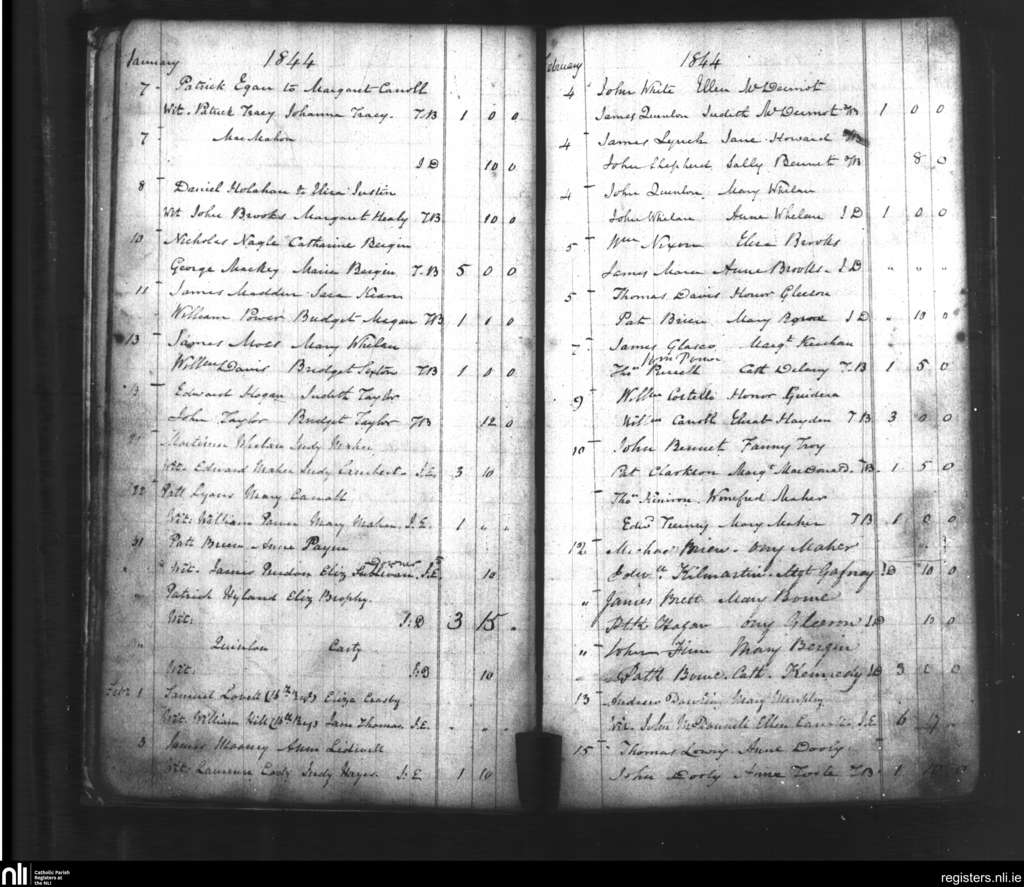 January 1844
7 Patrick Egan to Margaret Carroll
Wit. Patrick Tracy Johanna Tracy. T.B 1 0 0
7 MacMahon
J D 10 0
8 Daniel Holahan to Eliza
Wit John Brooks Margaret Healy T.B 10 0
10 Nicholas Nagle Catharine Bergin
George Mackey Maria Bergin T.B 5 0 0
11 James Madden Kean
William Power Bridget Megan TB 1 0 0
13 James Moes Mary Whelan
Davis Bridget Sexton TB 1 0 0
Edward Hogan Judith Taylor
John Taylor Bridget Taylor TB 12 0
21 Whelan Judy Maher
Wit. Edward Maher Judy J.E. 3 10
22 Patt Lyons Mary Carroll
Wit. William Mary Mahon J.E. 1 " "
31 Patt Anne Payne
" Wit. James Purdon Eliz Sullivan J.E 10
" Patrick Hyland Eliz Brophy.
Wit. J.D 3 15
" Quinlan Casty
Wit. J.D 10
Feb 1 Samuel Lovett Eliza
Wit. William Jane Thomas. J.E.
3 James Mooney Anne Lidwell
Wit Laurence Judy Hayes J.E 1 10
February 1844
4 John White Ellen McDermot
James Quinlan Judith McDermot TB 1 0 0
4 James Lynch Jane Howard
John Shepherd Sally Bennett TB 8 0
4 John Quinlon Mary Whelan
John Whelan Anne Whelan J D 1 0 0
5 Wm Nixon Eliza Brooks
James Mara Anne Brooks J.D " " "
5 Thomas Davis Honor Gleeson
Pat Brien Mary J D " 10 0
7 James Glasco Margt Kinchan
Wm Power
Thos Purcell Cath Delany T.B 1 5 0
9 Willm Costello Honor Guidera
Willm Carroll Hayden T B 3 0 0
10 John Bennet Fanny Troy
Pat Clarkson Margt MacDonald. TB 1 5 0
Thos Winefred Maher
Edwd Tierney Mary Maher T B 1 0 0
12 Michael Brien Maher
Edwd Kilmartin Mgt Gafney JD 10 0
" James Brett Mary Bowe
Ptk Hogan Gleeson JD 10 0
" John Finn Mary Bergin
Patt Bowe Cath. Kennedy JD 3 0 0
13 Andrew Mary Murphy
Wit John Ellen J.E 6
15 Thomas Lowry Anne Dooly
John Dooly Anne Toole T.B 1
nli
Catholic Parish
Registers at
the NLI
registers.nli.ie